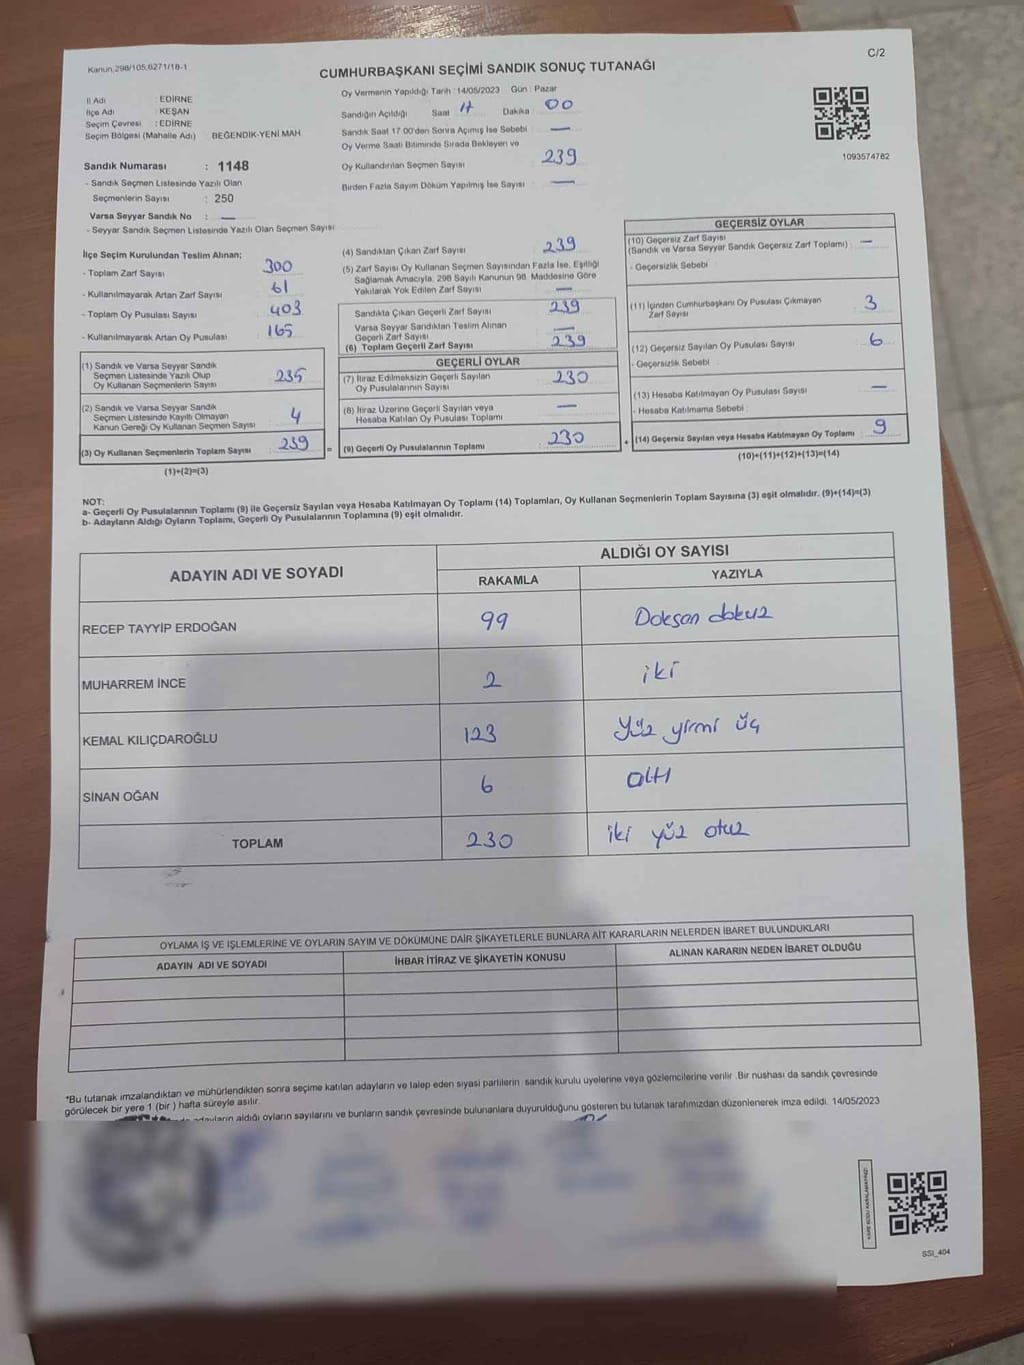 Kanun.298/105,6271/18-1
C/2
CUMHURBAŞKANI SEÇİMİ SANDIK SONUÇ TUTANAĞI
İl Adı : EDİRNE
İlçe Adı : KEŞAN
Seçim Çevresi : EDİRNE
Seçim Bölgesi (Mahalle Adı) BEĞENDİK-YENİ MAH
Sandık Numarası : 1148
- Sandık Seçmen Listesinde Yazılı Olan
Seçmenlerin Sayısı : 250
Varsa Seyyar Sandık No : —
- Seyyar Sandık Seçmen Listesinde Yazılı Olan Seçmen Sayısı
Oy Vermenin Yapıldığı Tarih :14/05/2023 Gün : Pazar
Sandığın Açıldığı Saat 17 Dakika : 00
Sandık Saat 17 00'den Sonra Açımış İse Sebebi : —
Oy Verme Saati Bitiminde Sırada Bekleyen ve
Oy Kullandırılan Seçmen Sayısı : 239
Birden Fazla Sayım Döküm Yapılmış İse Sayısı : —
1093574762
İlçe Seçim Kurulundan Teslim Alınan;
- Toplam Zarf Sayısı : 300
- Kullanılmayarak Artan Zarf Sayısı : 61
- Toplam Oy Pusulası Sayısı : 403
- Kullanılmayarak Artan Oy Pusulası : 165
(1) Sandık ve Varsa Seyyar Sandık
Seçmen Listesinde Yazılı Olup
Oy Kullanan Seçmenlerin Sayısı : 235
(2) Sandık ve Varsa Seyyar Sandık
Seçmen Listesinde Kayıtlı Olmayan
Kanun Gereği Oy Kullanan Seçmen Sayısı : 4
(3) Oy Kullanan Seçmenlerin Toplam Sayısı : 239
(1)+(2)=(3)
(4) Sandıktan Çıkan Zarf Sayısı : 239
(5) Zarf Sayısı Oy Kullanan Seçmen Sayısından Fazla İse, Eşitliği
Sağlamak Amacıyla, 298 Sayılı Kanunun 98. Maddesine Göre
Yakılarak Yok Edilen Zarf Sayısı : —
Sandıkta Çıkan Geçerli Zarf Sayısı : 239
Varsa Seyyar Sandıktan Teslim Alınan
Geçerli Zarf Sayısı : —
(6) Toplam Geçerli Zarf Sayısı : 239
GEÇERLİ OYLAR
(7) İtiraz Edilmeksizin Geçerli Sayılan
Oy Pusulalarının Sayısı : 230
(8) İtiraz Üzerine Geçerli Sayılan veya
Hesaba Katılan Oy Pusulası Toplamı : —
= (9) Geçerli Oy Pusulalarının Toplamı : 230
GEÇERSİZ OYLAR
(10) Geçersiz Zarf Sayısı
(Sandık ve Varsa Seyyar Sandık Geçersiz Zarf Toplamı) : —
- Geçersizlik Sebebi
(11) İçinden Cumhurbaşkanı Oy Pusulası Çıkmayan
Zarf Sayısı : 3
(12) Geçersiz Sayılan Oy Pusulası Sayısı : 6
- Geçersizlik Sebebi
(13) Hesaba Katılmayan Oy Pusulası Sayısı : —
- Hesaba Katılmama Sebebi :
+ (14) Geçersiz Sayılan veya Hesaba Katılmayan Oy Toplamı : 9
(10)+(11)+(12)+(13)=(14)
NOT:
a- Geçerli Oy Pusulalarının Toplamı (9) ile Geçersiz Sayılan veya Hesaba Katılmayan Oy Toplamı (14) Toplamları, Oy Kullanan Seçmenlerin Toplam Sayısına (3) eşit olmalıdır. (9)+(14)=(3)
b- Adayların Aldığı Oyların Toplamı, Geçerli Oy Pusulalarının Toplamına (9) eşit olmalıdır.
ADAYIN ADI VE SOYADI ALDIĞI OY SAYISI
RAKAMLA YAZIYLA
RECEP TAYYİP ERDOĞAN 99 Doksan dokuz
MUHARREM İNCE 2 iki
KEMAL KILIÇDAROĞLU 123 Yüz yirmi üç
SİNAN OĞAN 6 altı
TOPLAM 230 iki yüz otuz
OYLAMA İŞ VE İŞLEMLERİNE VE OYLARIN SAYIM VE DÖKÜMÜNE DAİR ŞİKAYETLERLE BUNLARA AİT KARARLARIN NELERDEN İBARET BULUNDUKLARI
ADAYIN ADI VE SOYADI İHBAR İTİRAZ VE ŞİKAYETİN KONUSU ALINAN KARARIN NEDEN İBARET OLDUĞU
*Bu tutanak imzalandıktan ve mühürlendikten sonra seçime katılan adayların ve talep eden siyasi partilerin sandık kurulu üyelerine veya gözlemcilerine verilir .Bir nüshası da sandık çevresinde
görülecek bir yere 1 (bir ) hafta süreyle asılır.
adayların aldığı oyların sayılarını ve bunların sandık çevresinde bulunanlara duyurulduğunu gösteren bu tutanak tarafımızdan düzenlenerek imza edildi. 14/05/2023
SSİ_404